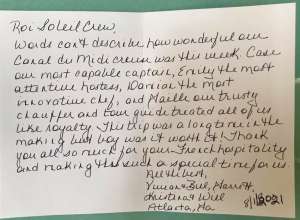 Roi Soleil Crew,
Words can't describe how wonderful our
Canal du Midi cruise was this week. Case
our most capable captain, Emily the most
attentive hostess, Damian the most
innovative chef, and Maelle our trusty
chauffer and tour guide treated all of us
like royalty. This trip was a long time in the
making but boy was it worth it! Thank
you all so much for your French hospitality
and making this such a special time for us.
All the best,
Bill, Harriett,
Kristina & Will
Atlanta, Ga
2021